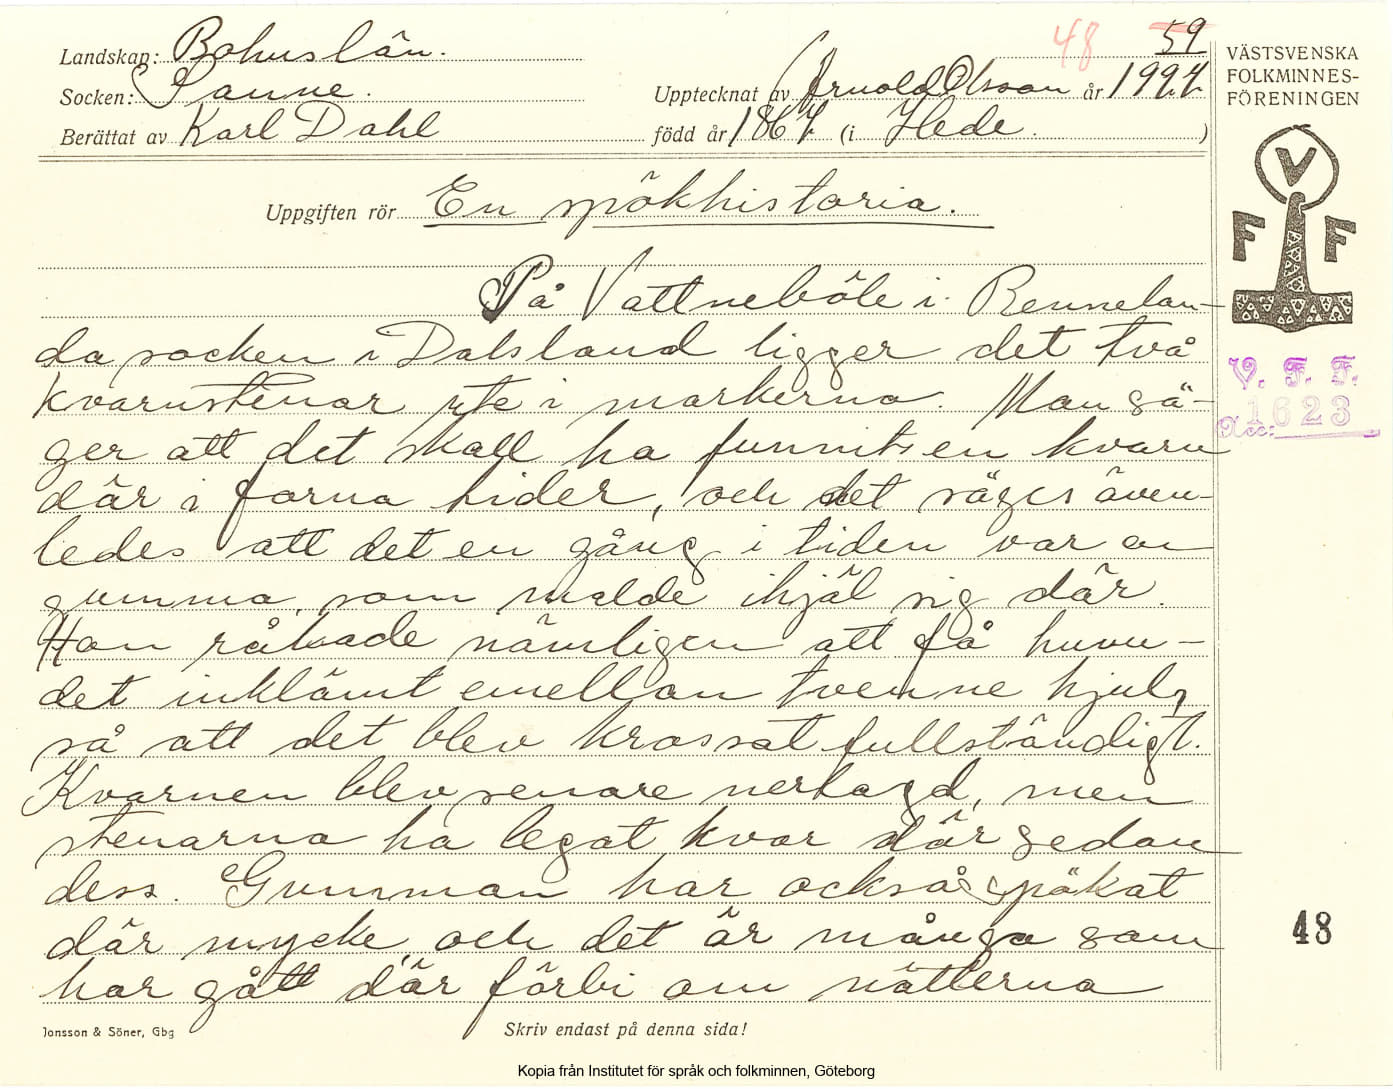 48 59
Landskap: Bohuslän.
Socken: Sanne.
Upptecknat av Arnold Olsson år 1924
Berättat av Karl Dahl
född år 1867 (i Hede. )
Uppgiften rör En spökhistoria.
På Vattneböle i Rennelan-
da socken i Dalsland ligger det två
kvarnstenar ute i markerna. Man sä-
ger att det skall ha funnits en kvarn
där i forna tider, och det säges även-
ledes att det en gång i tiden var en
gumma, som malde ihjäl sig där.
Hon råkade nämligen att få huvu-
det inklämt emellan tvenne hjul,
så att det blev krossat fullständigt.
Kvarnen blev senare nertagd, men
stenarna ha legat kvar där sedan
dess. Gumman har också spökat
där mycke, och det är många som
har gått där förbi om nätterna
Jonsson & Söner, Gbg
Skriv endast på denna sida!
VÄSTSVENSKA
FOLKMINNES-
FÖRENINGEN
V
F F
V. F. F.
Acc: 1623
48
Kopia från Institutet för språk och folkminnen, Göteborg